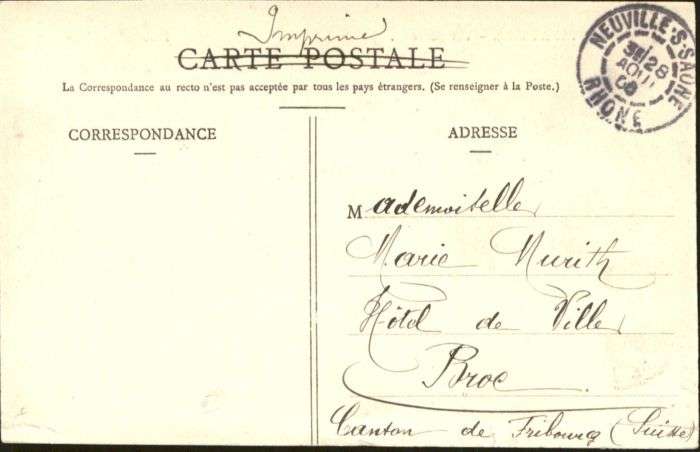 Imprimé
CARTE POSTALE
La Correspondance au recto n'est pas acceptée par tous les pays étrangers. (Se renseigner à la Poste.)
CORRESPONDANCE
ADRESSE
Mademoiselle
Marie Murith
Hôtel de Ville
Broc
Canton de Fribourg (Suisse)
NEUVILLE-S-SAONE
28
AOUT
RHONE